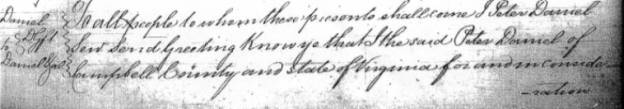 Daniel To all people to whom these presents shall come I Peter Daniel
Dft Sen Send Greeting Know ye that I the said Peter Daniel of
Daniel &al Campbell County and state of Virginia for and in conside-
-ration